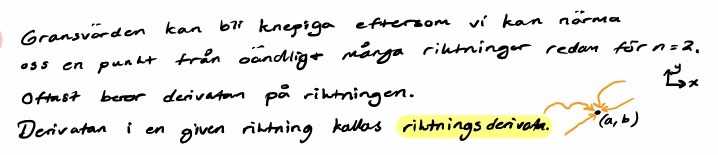 Gränsvärden kan bli knepiga eftersom vi kan närma
oss en punkt från oändligt många riktningar redan för n=2.
Oftast beror derivatan på riktningen.
Derivatan i en given riktning kallas riktningsderivata.
y
x
(a,b)